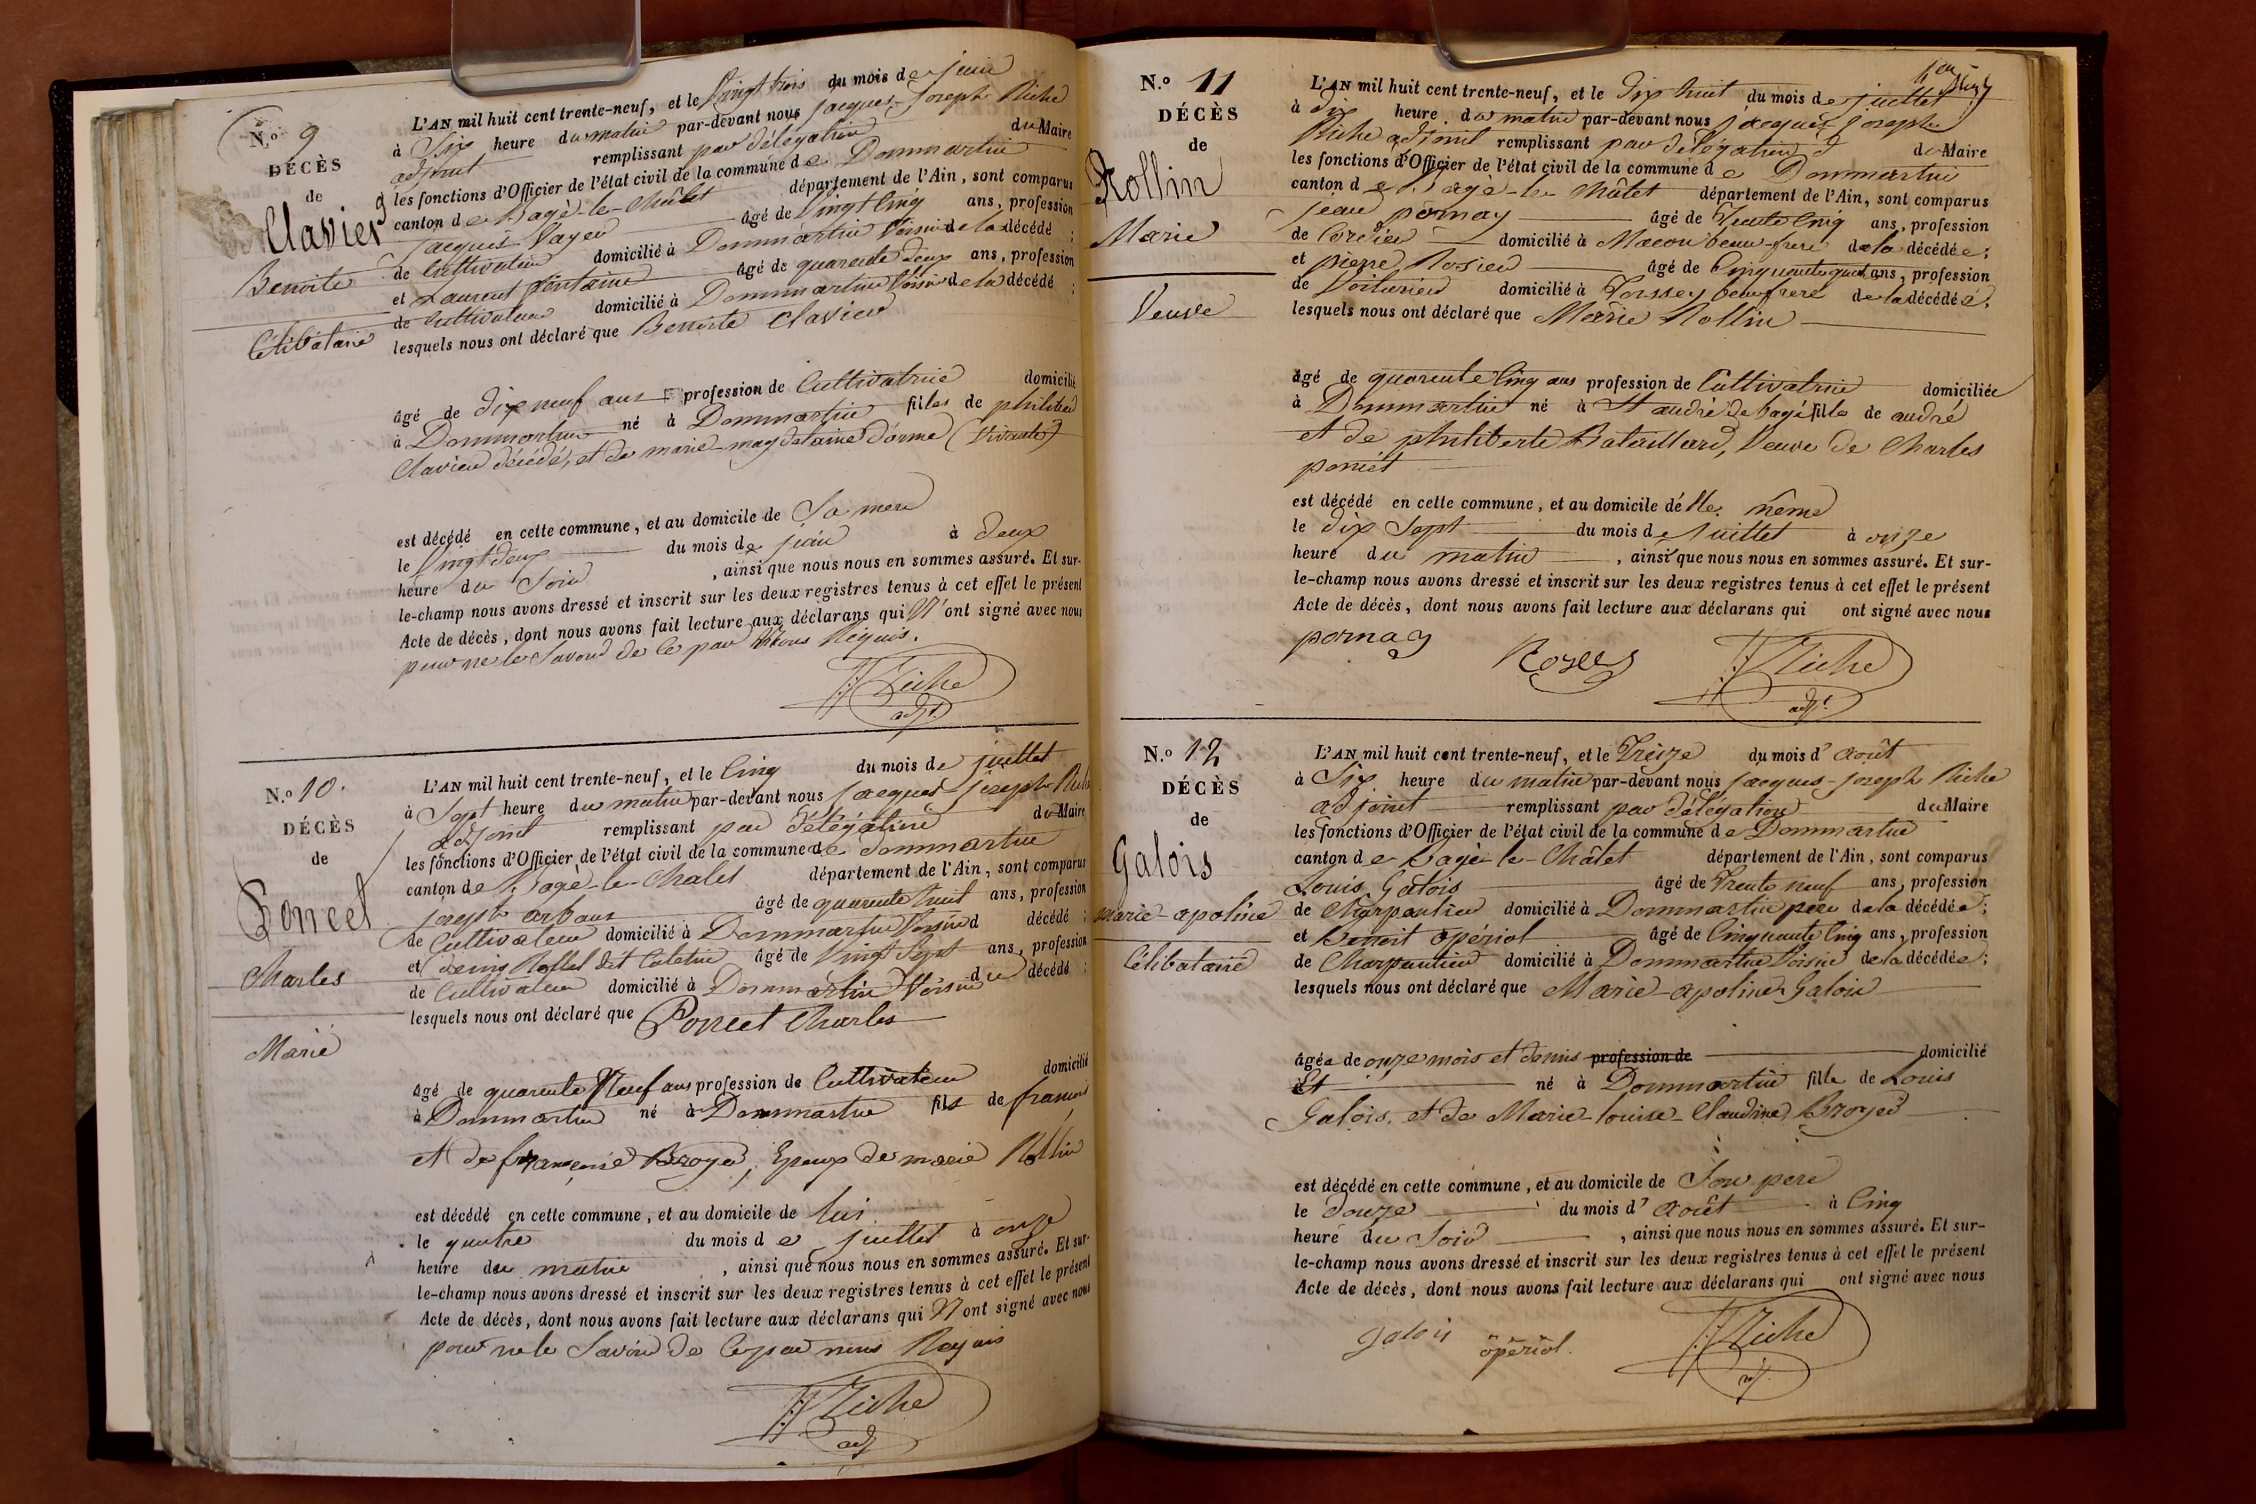 N.º 9
DÉCÈS
de
Clavier
Benoite
Célibataire
L'AN mil huit cent trente-neuf, et le Vingt trois du mois de juin
à Six heure du matin par-devant nous jacques-joseph Riche
adjoint remplissant par délégation du Maire
les fonctions d'Officier de l'état civil de la commune de Dommartin
canton de Bagé-le-Châtel département de l'Ain, sont comparus
jacques Vayer âgé de Vingt Cinq ans, profession
de Cultivateur domicilié à Dommartin Voisin de la décédé ;
et Laurent fontaine âgé de quarente deux ans, profession
de Cultivateur domicilié à Dommartin Voisin de la décédé ;
lesquels nous ont déclaré que Benoite Clavier
âgé de dix neuf ans profession de Cultivatrice domicilié
à Dommartin né à Dommartin filles de philibert
Clavier décédé, et de marie-magdelaine Dorme (Vivante)
est décédé en cette commune, et au domicile de Sa mere
le Vingt deux du mois de juin à deux
heure du Soir , ainsi que nous nous en sommes assuré. Et sur-
le-champ nous avons dressé et inscrit sur les deux registres tenus à cet effet le présent
Acte de décès, dont nous avons fait lecture aux déclarans qui N'ont signé avec nous
pour ne le Savoir de Ce par Nous Réquis.
Riche
adj.t
N.º 10.
DÉCÈS
de
Poncet
Charles
Marié
L'AN mil huit cent trente-neuf, et le Cinq du mois de juillet
à Sept heure du matin par-devant nous jacques-joseph Riche
adjoint remplissant par délégation du Maire
les fonctions d'Officier de l'état civil de la commune de Dommartin
canton de Bagé-le-Chatel département de l'Ain, sont comparus
joseph arbaus âgé de quarente huit ans, profession
de Cultivateur domicilié à Dommartin Voisin d décédé ;
et Rollet dit Catetin âgé de Vingt Sept ans, profession
de Cultivateur domicilié à Dommartin Voisin du décédé ;
lesquels nous ont déclaré que Poncet Charles
âgé de quarente Neuf ans profession de Cultivateur domicilié
à Dommartin né à Dommartin fils de francois
et de françoise Broyer, Epoux de marie Rollin
est décédé en cette commune, et au domicile de lui
le quatre du mois de juillet à onze
heure du matin , ainsi que nous nous en sommes assuré. Et sur-
le-champ nous avons dressé et inscrit sur les deux registres tenus à cet effet le présent
Acte de décès, dont nous avons fait lecture aux déclarans qui N'ont signé avec nous
pour ne le Savoir de Ce par nous Requis
Riche
adj
N.º 11
DÉCÈS
de
Rollin
Marie
Veuve
L'AN mil huit cent trente-neuf, et le Dix huit du mois de juillet
à dix heure du matin par-devant nous jacques-joseph
Riche adjoint remplissant par délégation d du Maire
les fonctions d'Officier de l'état civil de la commune de Dommartin
canton de Bagé-le-Châtel département de l'Ain, sont comparus
jean pornay âgé de Trente Cinq ans, profession
de Cordier domicilié à Macon beau-frere de la décédée ;
et pierre Rosier âgé de Cinquante quatre ans, profession
de Voiturier domicilié à beaufrere de la décédée ;
lesquels nous ont déclaré que Marie Rollin
âgé de quarente Cinq ans profession de Cultivatrice domiciliée
à Dommartin né à St andré de bagé fille de andré
et de philiberte Bataillard, Veuve de Charles
poncet
est décédé en cette commune, et au domicile d'elle même
le dix Sept du mois de Juillet à onze
heure du matin , ainsi que nous nous en sommes assuré. Et sur-
le-champ nous avons dressé et inscrit sur les deux registres tenus à cet effet le présent
Acte de décès, dont nous avons fait lecture aux déclarans qui ont signé avec nous
pornay Riche
adj.t
N.º 12
DÉCÈS
de
Galois
Marie-apoline
Célibataire
L'AN mil huit cent trente-neuf, et le Treize du mois d'août
à Six heure du matin par-devant nous jacques-joseph Riche
adjoint remplissant par délégation du Maire
les fonctions d'Officier de l'état civil de la commune de Dommartin
canton de Bagé-le-Châtel département de l'Ain, sont comparus
Louis Galois âgé de Trente neuf ans, profession
de Charpentier domicilié à Dommartin père de la décédée ;
et Benoit opériol âgé de Cinquante Cinq ans, profession
de Charpentier domicilié à Dommartin Voisin de la décédée ;
lesquels nous ont déclaré que Marie-apoline Galois
âgée de onze mois et demis profession de domicilié
à né à Dommartin fille de Louis
Galois, et de Marie-louise-Claudine Broyer
est décédé en cette commune, et au domicile de Son pere
le douze du mois d'août à Cinq
heure du Soir , ainsi que nous nous en sommes assuré. Et sur-
le-champ nous avons dressé et inscrit sur les deux registres tenus à cet effet le présent
Acte de décès, dont nous avons fait lecture aux déclarans qui ont signé avec nous
galois opériol. Riche